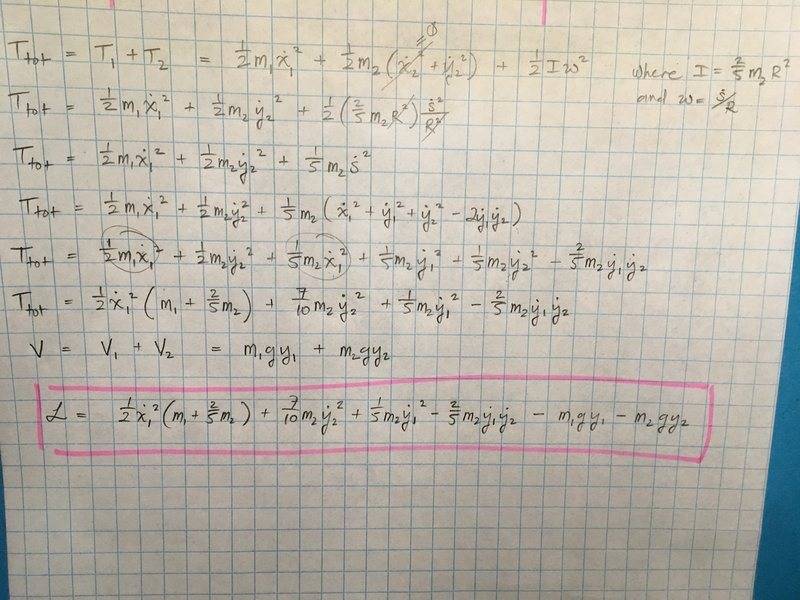 T_tot = T₁ + T₂ = ½m₁ẋ₁² + ½m₂(ẋ₂² + ẏ₂²) + ½Iω² where I = ⅖m₂R²
= 0
and ω = ṡ/R
T_tot = ½m₁ẋ₁² + ½m₂ẏ₂² + ½(⅖m₂R²)ṡ²/R²
T_tot = ½m₁ẋ₁² + ½m₂ẏ₂² + ⅕m₂ṡ²
T_tot = ½m₁ẋ₁² + ½m₂ẏ₂² + ⅕m₂(ẋ₁² + ẏ₁² + ẏ₂² - 2ẏ₁ẏ₂)
T_tot = ½m₁ẋ₁² + ½m₂ẏ₂² + ⅕m₂ẋ₁² + ⅕m₂ẏ₁² + ⅕m₂ẏ₂² - ⅖m₂ẏ₁ẏ₂
T_tot = ½ẋ₁²(m₁ + ⅖m₂) + 7/10 m₂ẏ₂² + ⅕m₂ẏ₁² - ⅖m₂ẏ₁ẏ₂
V = V₁ + V₂ = m₁gy₁ + m₂gy₂
ℒ = ½ẋ₁²(m₁ + ⅖m₂) + 7/10 m₂ẏ₂² + ⅕m₂ẏ₁² - ⅖m₂ẏ₁ẏ₂ - m₁gy₁ - m₂gy₂